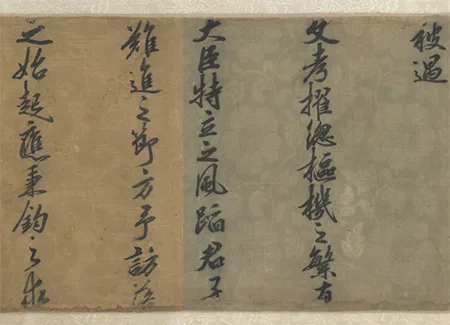 被遇
文考擢總樞機之繁有
大臣特立之風蹈君子
難進之節方予訪落
之始起應秉鈞之求